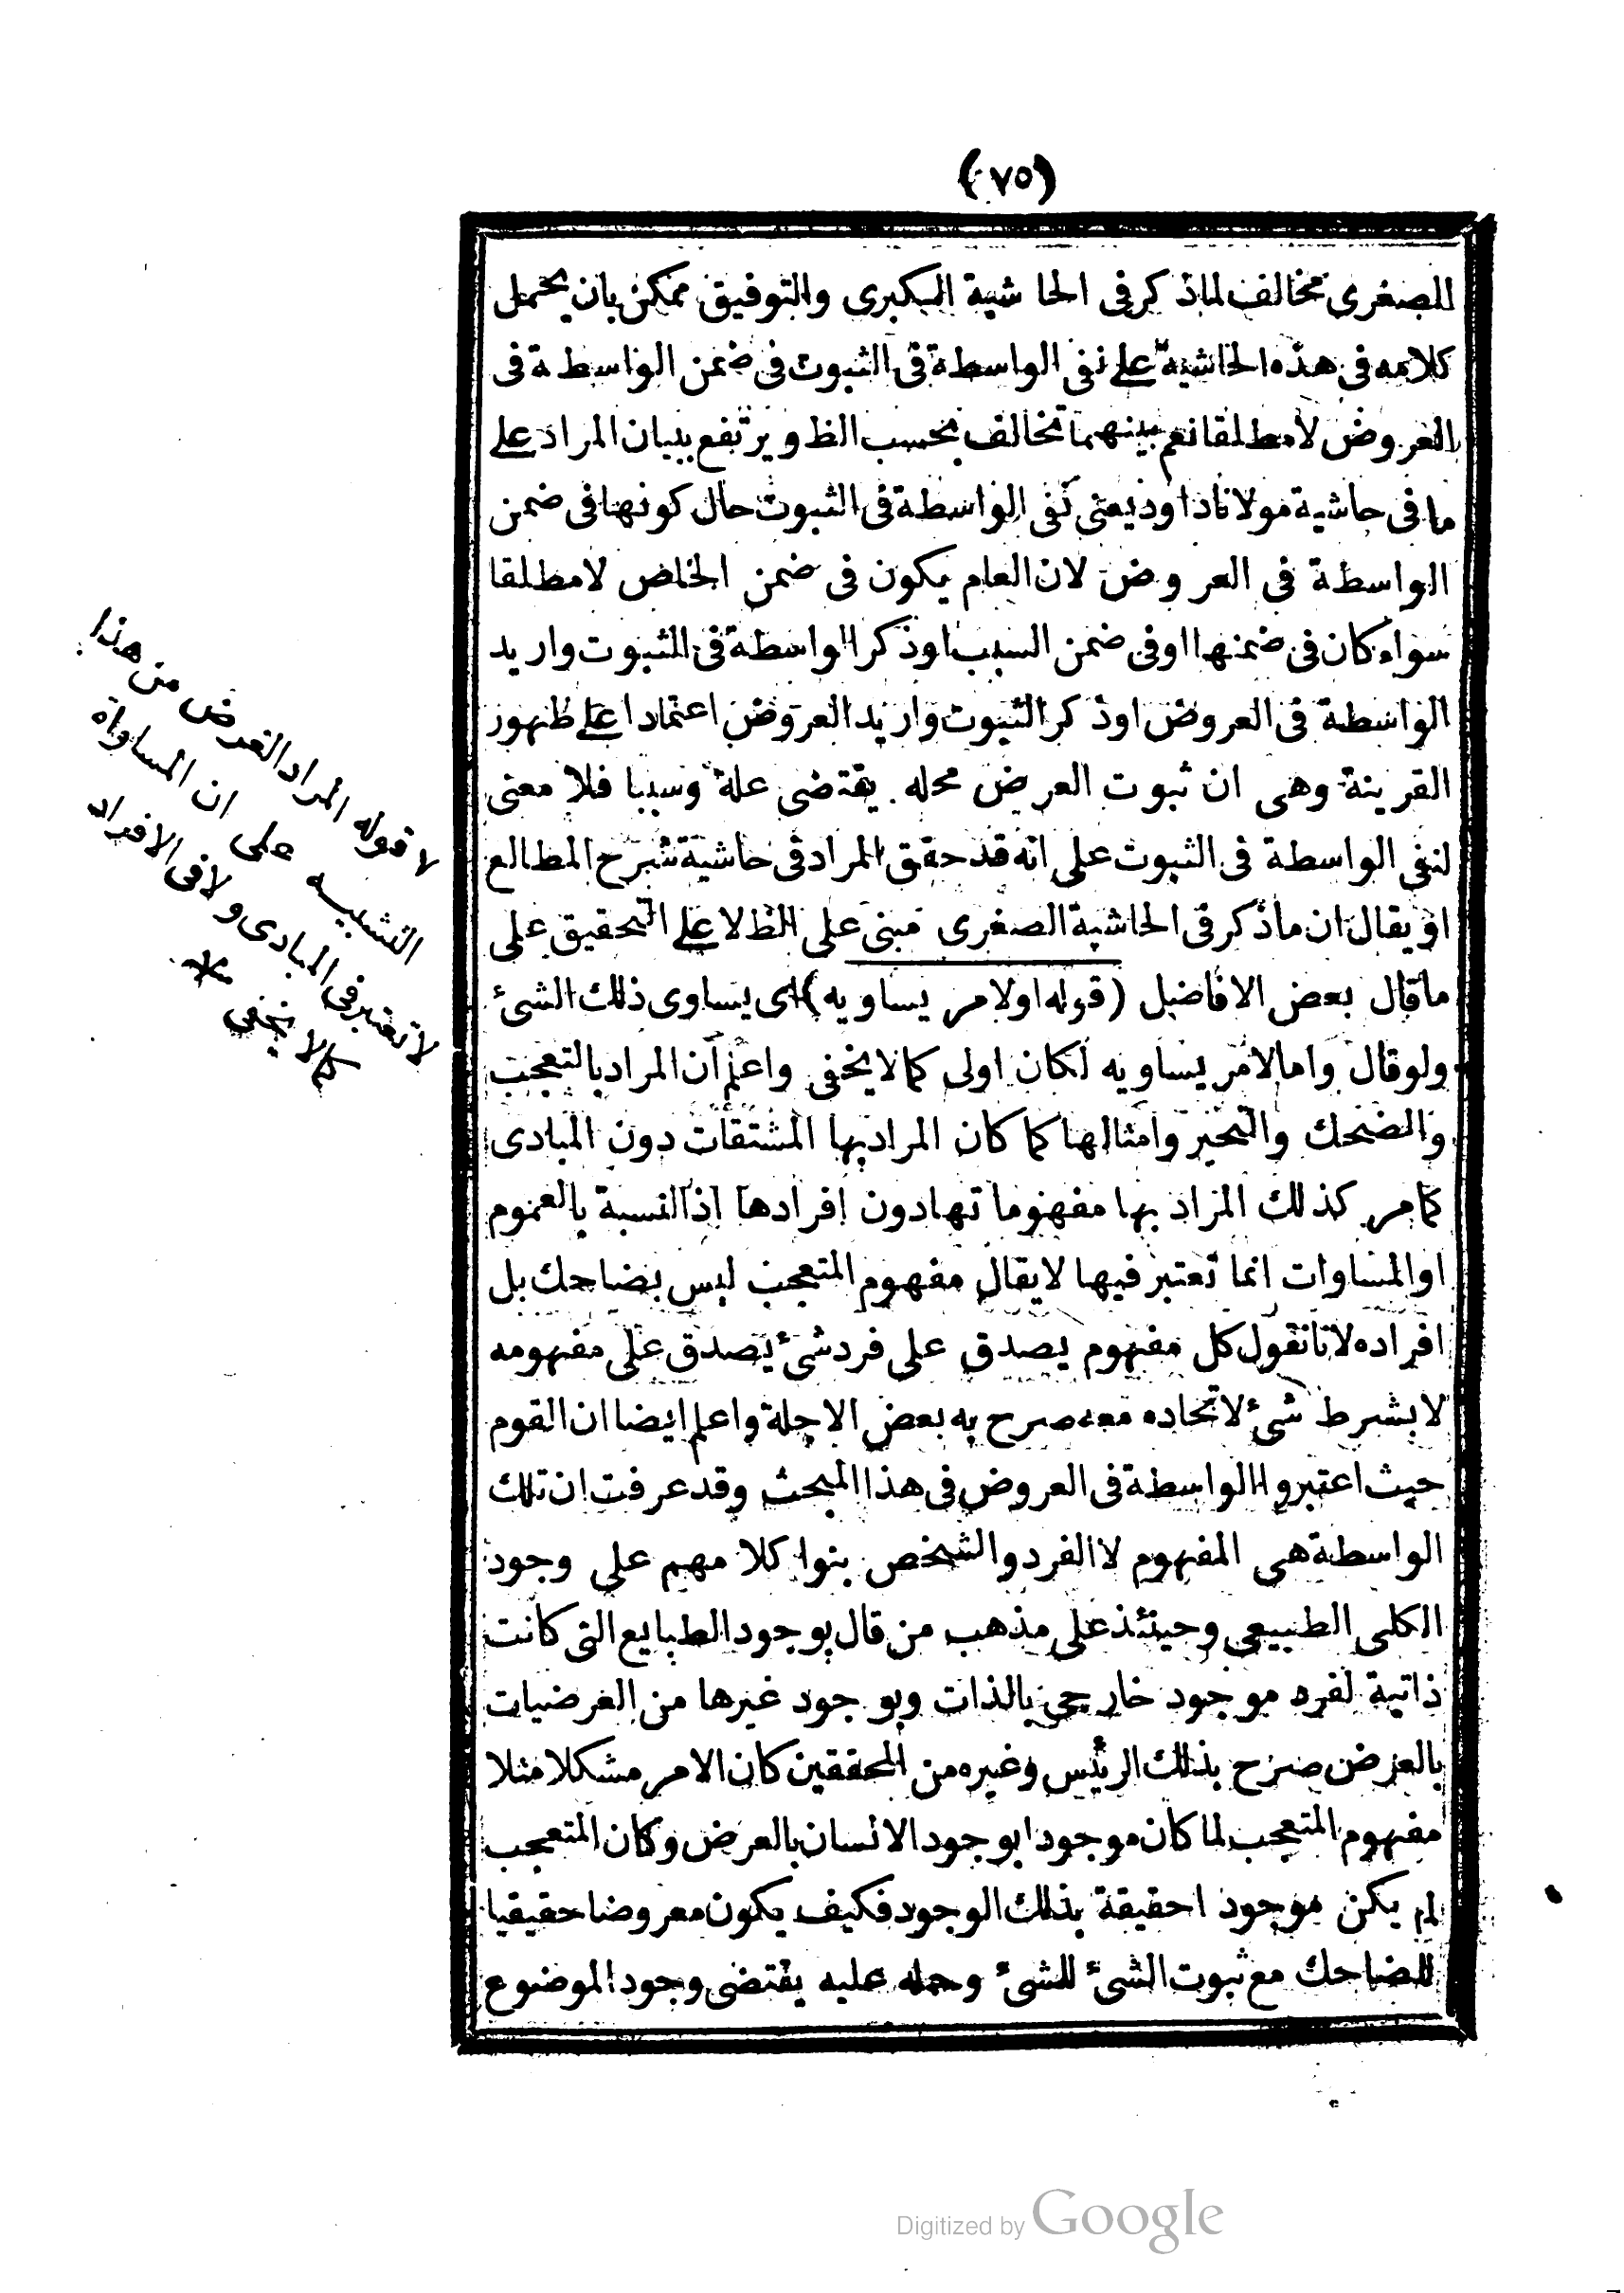 (٧٥)
للصغرى مخالف لما ذكر فى الحاشية الكبرى والتوفيق ممكن بان يحمل
كلامه فى هذه الحاشية على نفى الواسطة فى الثبوت فى ضمن الواسطة فى
العروض لا مطلقا نعم بينهما تخالف بحسب الظ ويرتفع ببيان المراد على
ما فى حاشية مولانا داود يعنى نفى الواسطة فى الثبوت حال كونها فى ضمن
الواسطة فى العروض لان العام يكون فى ضمن الخاص لا مطلقا
سواء كان فى ضمنها او فى ضمن السبب او ذكر الواسطة فى الثبوت واريد
الواسطة فى العروض او ذكر الثبوت واريد العروض اعتمادا على ظهور
القرينة وهى ان ثبوت العرض محله يقتضى علة وسببا فلا معنى
لنفى الواسطة فى الثبوت على انه قد حقق المراد فى حاشية شرح المطالع
او يقال ان ما ذكر فى الحاشية الصغرى مبنى على الظ لا على التحقيق على
ما قال بعض الافاضل (قوله او لامر يساويه) اى يساوى ذلك الشئ
ولو قال واما لامر يساويه لكان اولى كما لا يخفى واعلم ان المراد بالتعجب
والضحك والتحير وامثالها كما كان المراد بها المشتقات دون المبادى
كما مر كذلك المراد بها مفهوماتها دون افرادها اذ النسبة بالعموم
او المساوات انما تعتبر فيها لا يقال مفهوم المتعجب ليس بضاحك بل
افراده لانا نقول كل مفهوم يصدق على فرد شئ يصدق على مفهومه
لا بشرط شئ لاتحاده معه صرح به بعض الاجلة واعلم ايضا ان القوم
حيث اعتبروا الواسطة فى العروض فى هذا المبحث وقد عرفت ان تلك
الواسطة هى المفهوم لا الفرد والشخص بنوا كلامهم على وجود
الكلى الطبيعى وحينئذ على مذهب من قال بوجود الطبايع التى كانت
ذاتية لفرد موجود خارجى بالذات وبوجود غيرها من العرضيات
بالعرض صرح بذلك الرئيس وغيره من المحققين كان الامر مشكلا مثلا
مفهوم المتعجب لما كان موجودا بوجود الانسان بالعرض وكان المتعجب
لم يكن موجودا حقيقة بذلك الوجود فكيف يكون معروضا حقيقيا
للضاحك مع ثبوت الشئ للشئ وحمله عليه يقتضى وجود الموضوع
قوله المراد الغرض من هذا
التنبيه على ان المساواة
لا تعتبر فى المبادى ولا فى الافراد
كما لا يخفى *
Digitized by Google